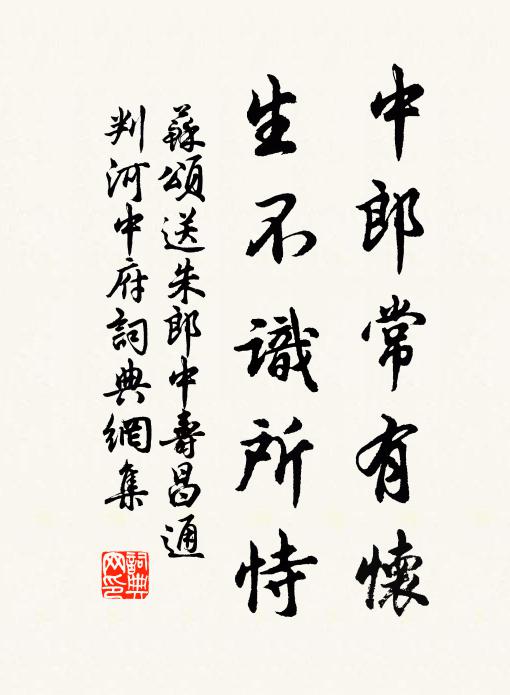 中郎常有懷
生不識所恃
蘇頌送朱郎中壽昌通
判河中府詞典網集
詞典
网印